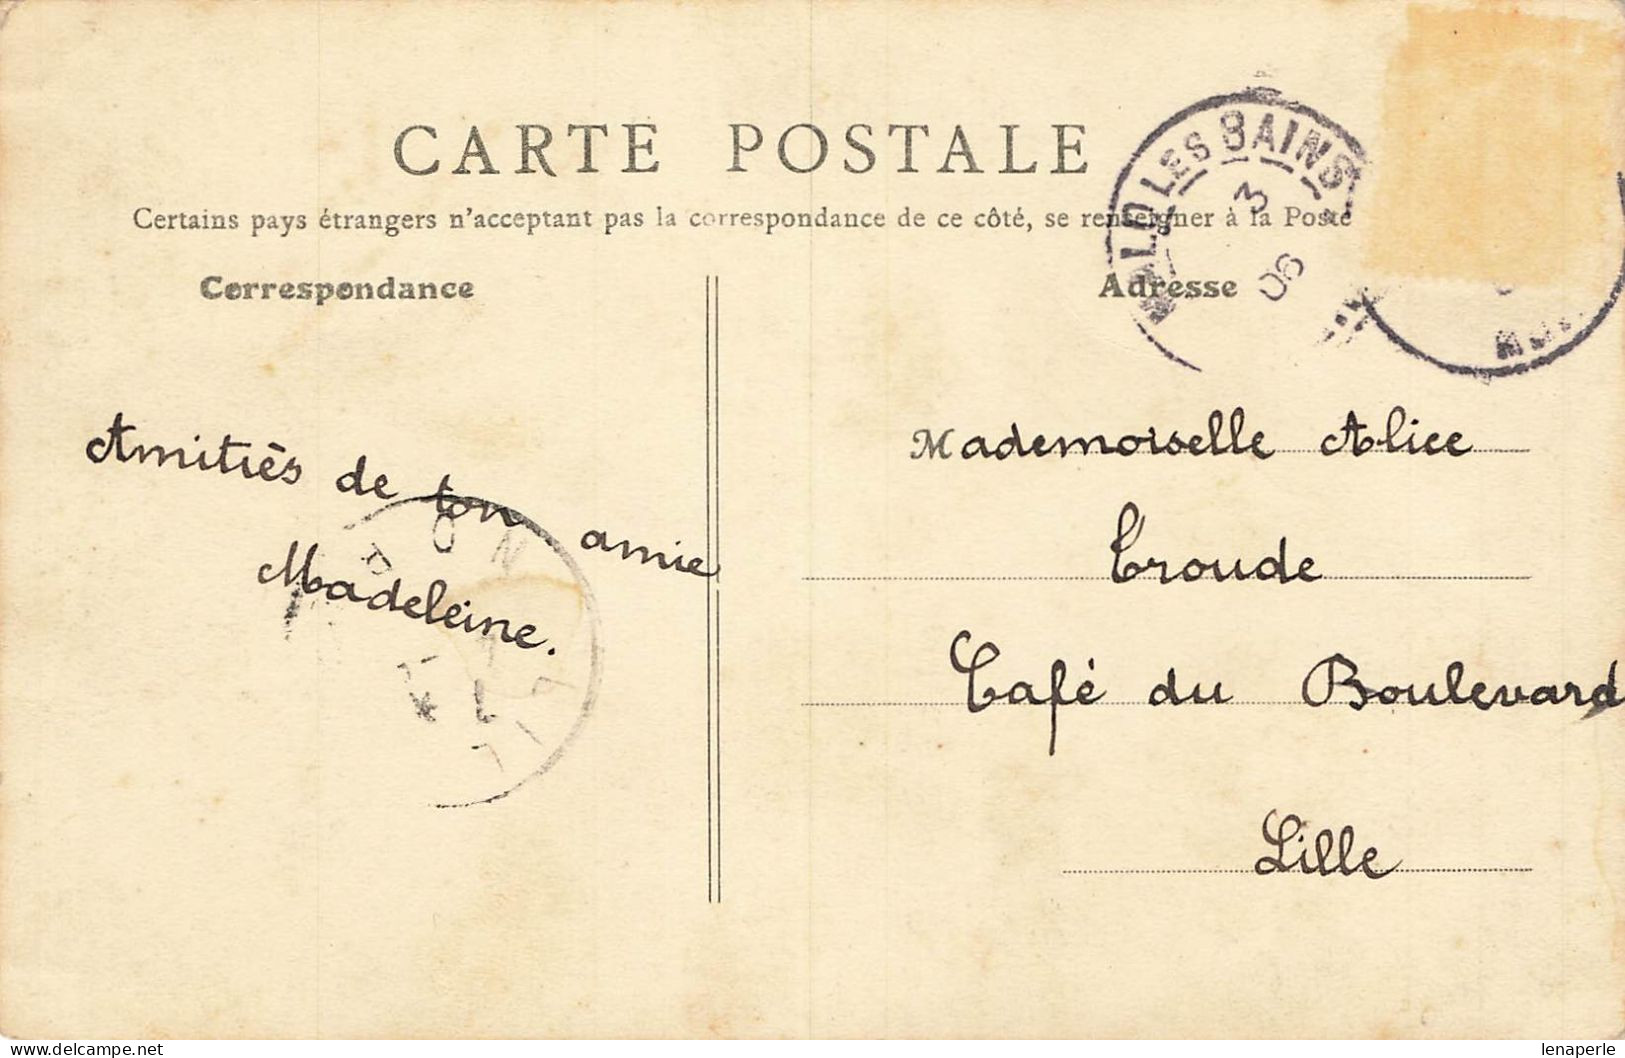 CARTE POSTALE
Certains pays étrangers n'acceptant pas la correspondance de ce côté, se renseigner à la Poste
Correspondance
Adresse
LO LES BAINS
3
06
Amitiés de ton amie
Madeleine.
Mademoiselle Alice
Troude
Café du Boulevard
Lille
delcampe.net
lenaperle